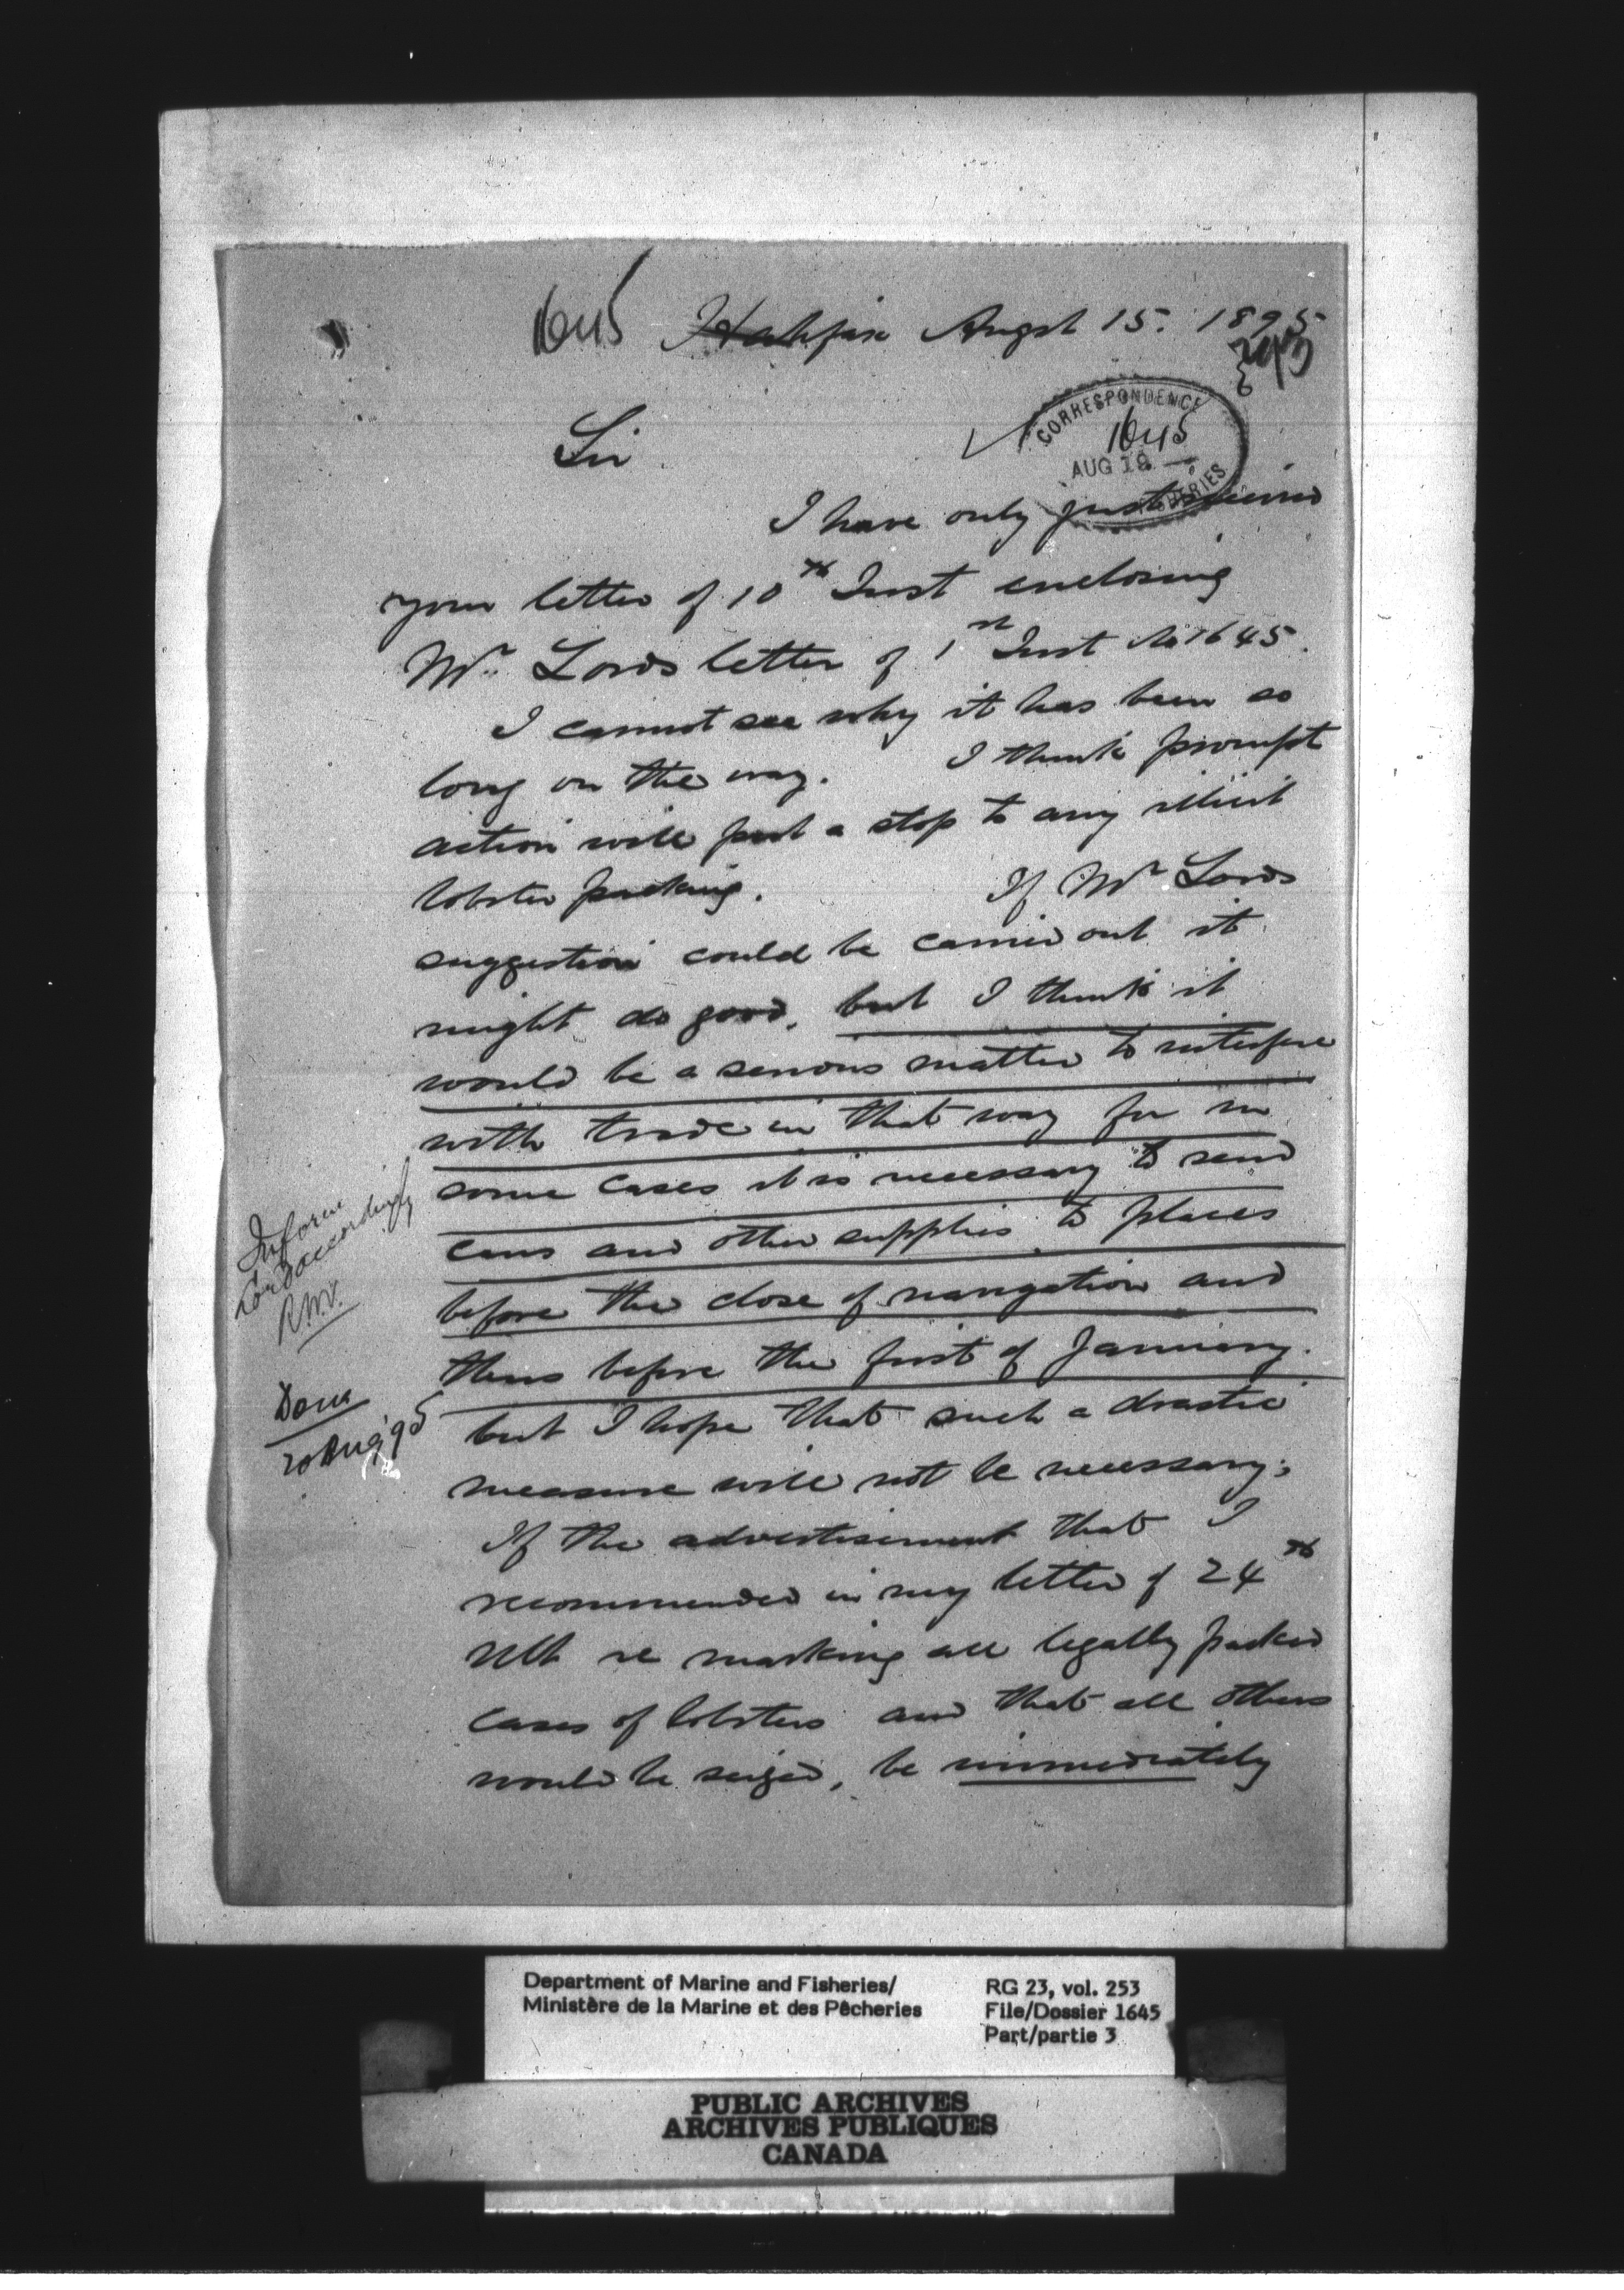 1645 Halifax Augst 15. 1895
Sir
CORRESPONDENCE
1645
AUG 19
FISHERIES
I have only just received
your letter of 10th Inst enclosing
Mr. Lords letter of 1st Inst No 1645.
I cannot see why it has been so
long on the way. I think prompt
action will put a stop to any illicit
lobster packing. If Mr Lords
suggestion could be carried out it
might do good, but I think it
would be a serious matter to interfere
with trade in that way for in
some cases it is necessary to send
cans and other supplies to places
before the close of navigation and
thus before the first of January.
but I hope that such a drastic
measure will not be necessary;
If the advertisement that I
recommended in my letter of 24th
Ult re marking all legally packed
cases of lobsters and that all others
would be seized, be immediately
Inform
Lord accordingly
R.N.V.
Done
20 Aug '95
Department of Marine and Fisheries/
Ministère de la Marine et des Pêcheries
RG 23, vol. 253
File/Dossier 1645
Part/partie 3
PUBLIC ARCHIVES
ARCHIVES PUBLIQUES
CANADA